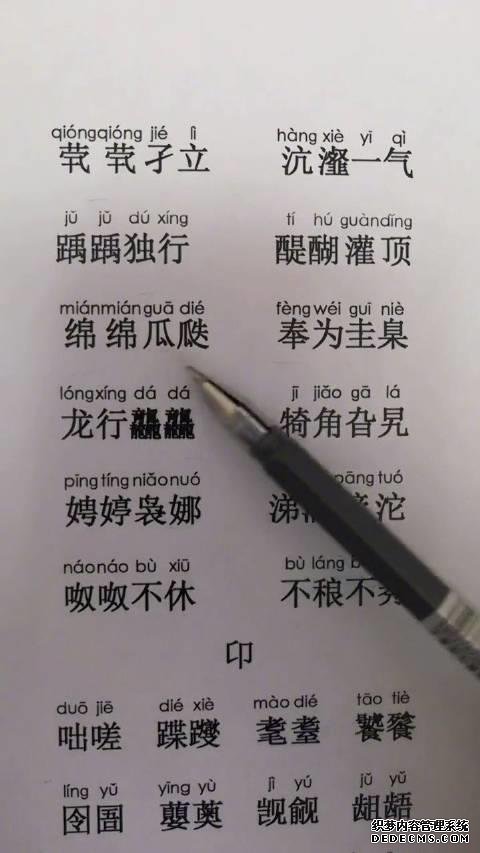 qióngqióng jié lì hàng xiè yī qì
茕茕孑立 沆瀣一气
jǔ jǔ dú xíng tí hú guàndǐng
踽踽独行 醍醐灌顶
miánmiánguā dié fèng wéi guī niè
绵绵瓜瓞 奉为圭臬
lóngxíng dá dá jī jiǎo gā lá
龙行龘龘 犄角旮旯
pīng tíng niǎo nuó pāng tuó
娉婷袅娜 涕 沱
náo náo bù xiū bù láng b
呶呶不休 不稂不
印
duō jiē dié xiè mào dié tāo tiè
咄嗟 蹀躞 耄耋 饕餮
líng yǔ yīng yù jì yú jǔ yǔ
囹圄 蘡薁 觊觎 龃龉
织梦内容管理系统
DEDECMS.COM